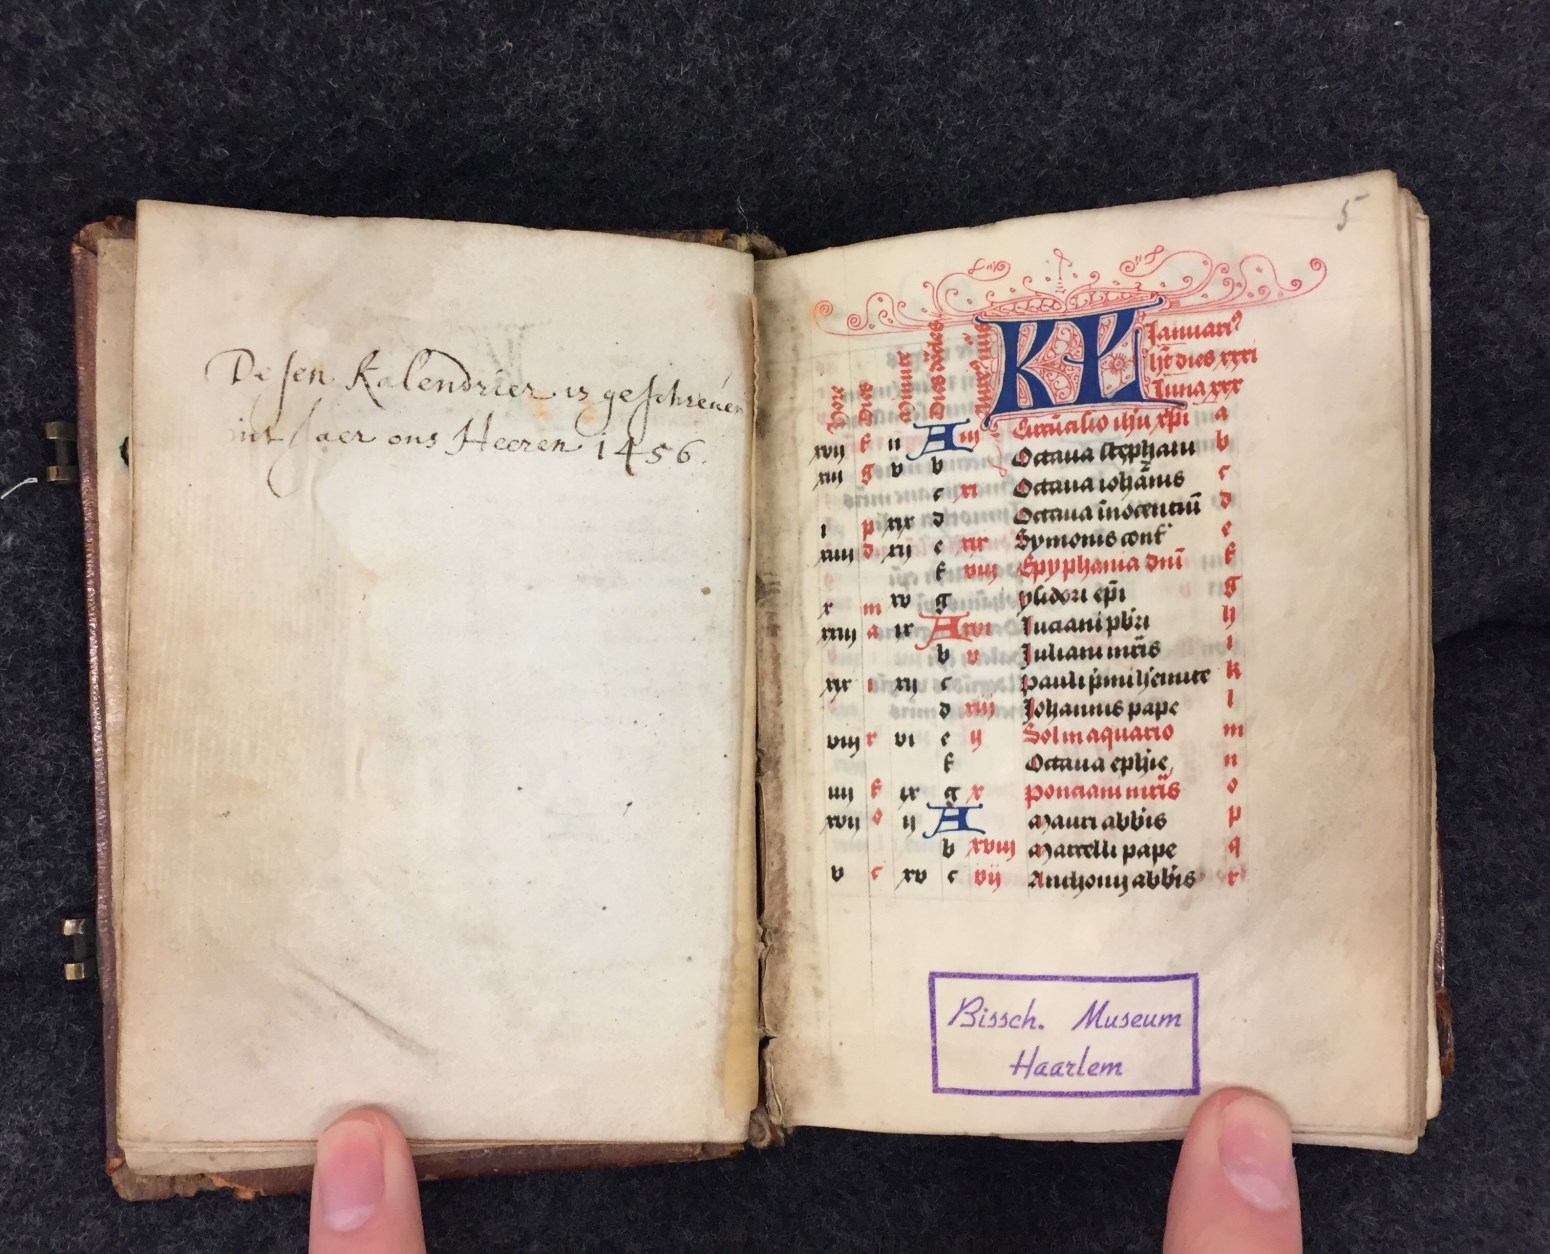 Desen Kalendrier is geschreven
int Jaer ons Heeren 1456.
5
KL
Januari9
ht dies xxxi
luna xxx
hore
Dies
xvij f ij A iij Circucisio ihu xpi a
xiij g v b Octaua stephani b
c xi Octaua iohanis c
i p xix d Octaua inocentiu d
xiiij d xij e xix Symonis conf e
f viij Epyphania dni f
x m xv g ysidori epi g
xiij a ix A xvi luciani pbri h
b v Juliani mris i
xix i xij c pauli pmi hemite k
d xiij Johannis pape l
viij r vi e ij Sol in aquario m
f Octaua ephie n
iiij f ix g x ponciani mris o
xvij o ij A Mauri abbis p
b xviij Marcelli pape q
v c xv c vij Anthonij abbis r
Bissch. Museum
Haarlem